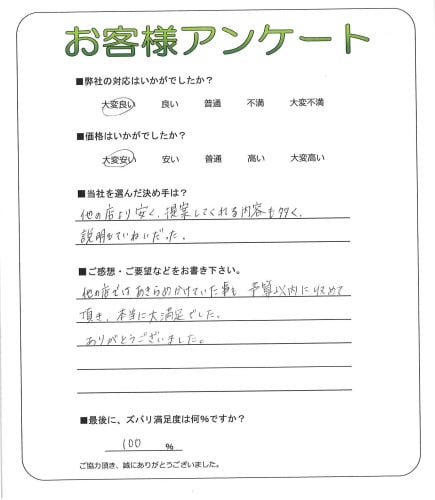 お客様アンケート
■弊社の対応はいかがでしたか？
大変良い 良い 普通 不満 大変不満
■価格はいかがでしたか？
大変安い 安い 普通 高い 大変高い
■当社を選んだ決め手は？
他の店より安く、提案してくれる内容も多く、
説明もていねいだった。
■ご感想・ご要望などをお書き下さい。
他の店ではあきらめかけていた事も 予算以内に収めて
頂き、本当に大満足でした。
ありがとうございました。
■最後に、ズバリ満足度は何%ですか？
100 %
ご協力頂き、誠にありがとうございました。